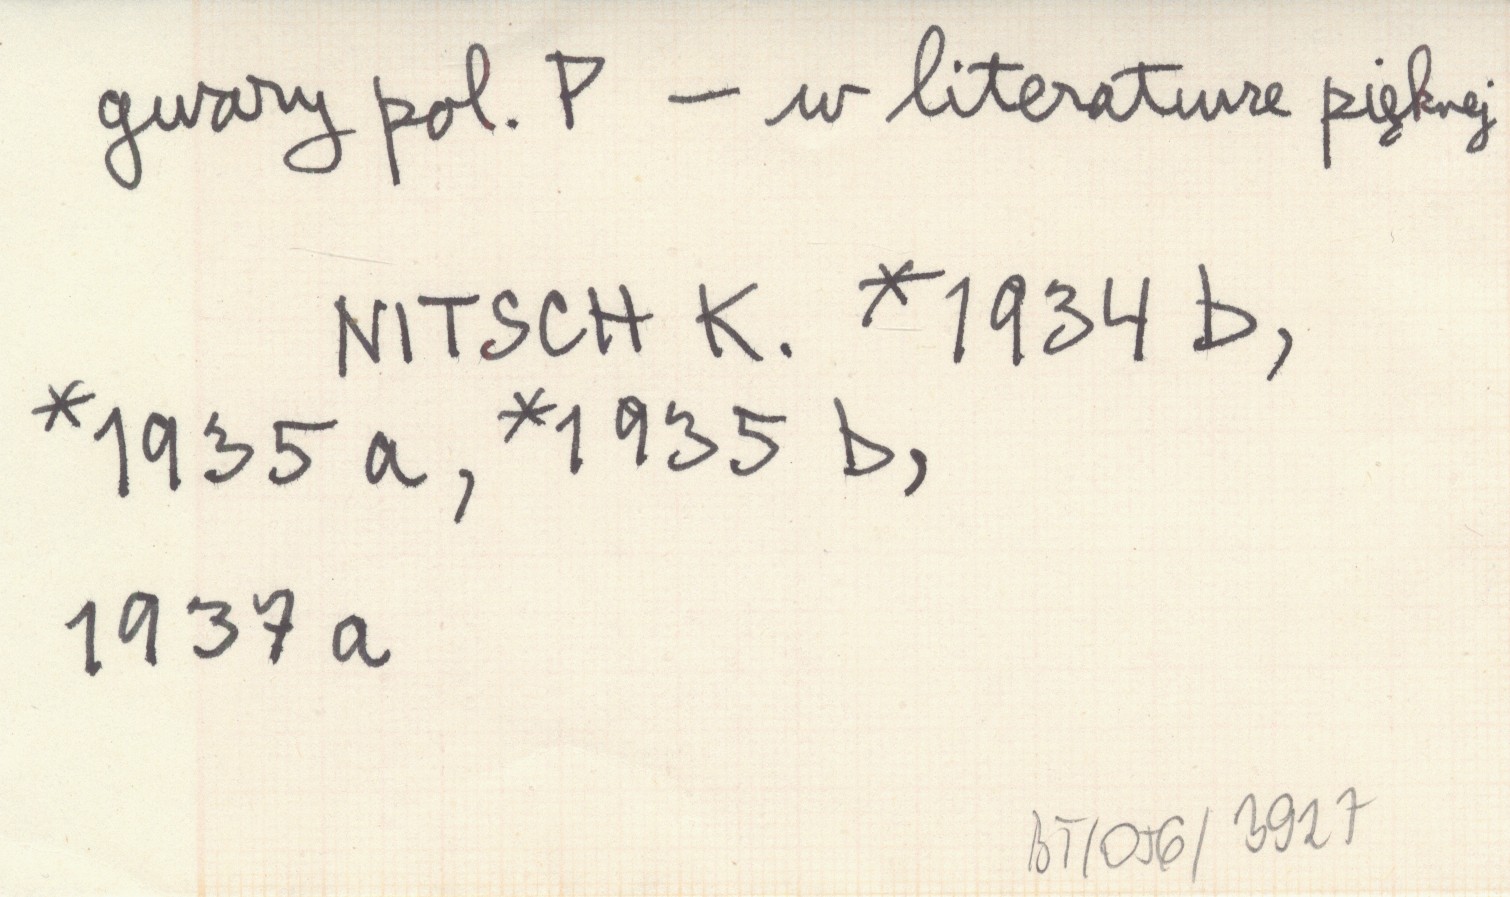 gwary pol. P — w literaturze pięknej
NITSCH K. *1934 b,
*1935 a, *1935 b,
1937 a
BT/OJG/3927